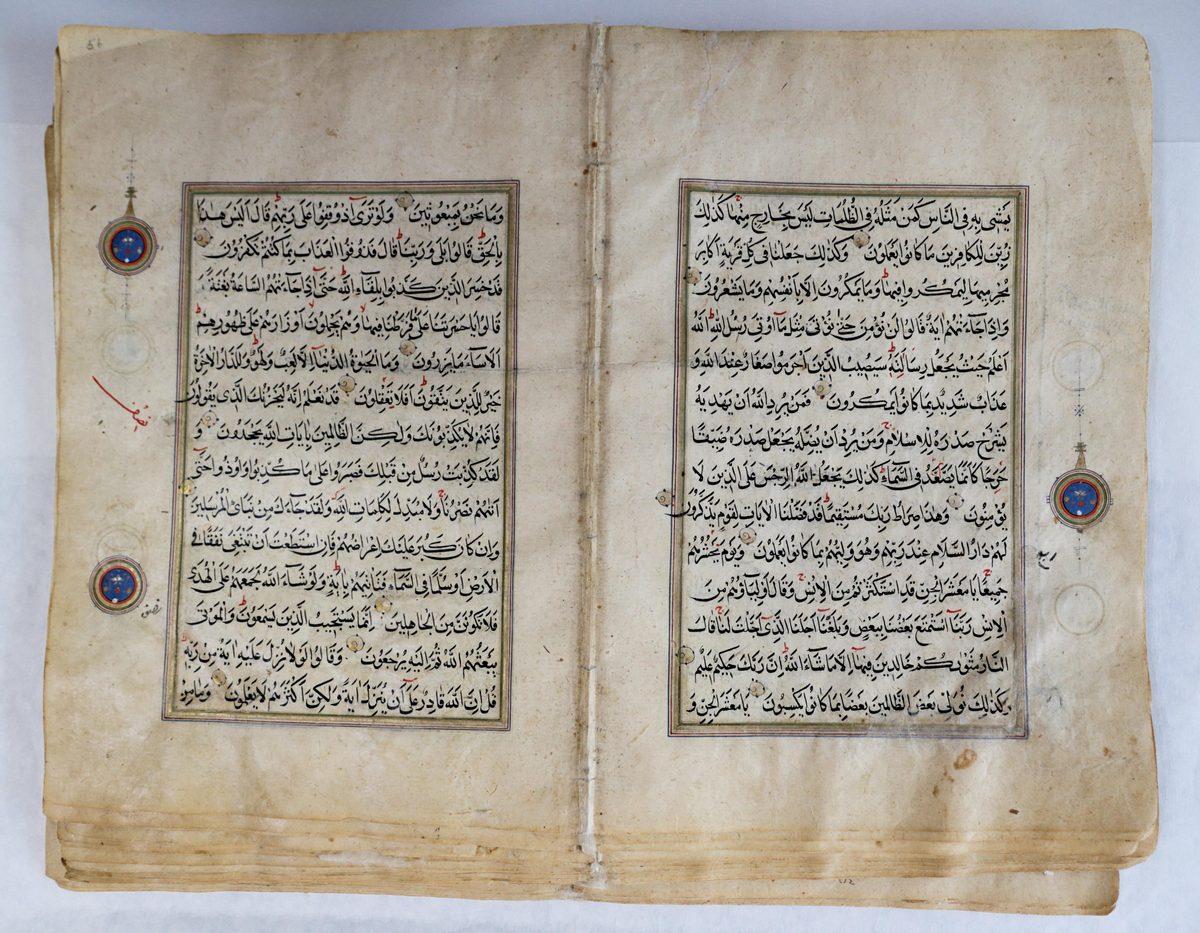 يمشي به في الناس كمن مثله في الظلمات ليس بخارج منها كذلك
زين للكافرين ما كانوا يعملون وكذلك جعلنا في كل قرية اكابر
مجرميها ليمكروا فيها وما يمكرون الا بانفسهم وما يشعرون
واذا جاءتهم اية قالوا لن نؤمن حتى نؤتى مثل ما اوتي رسل الله الله
اعلم حيث يجعل رسالته سيصيب الذين اجرموا صغار عند الله و
عذاب شديد بما كانوا يمكرون فمن يرد الله ان يهديه
يشرح صدره للاسلام ومن يرد ان يضله يجعل صدره ضيقا
حرجا كانما يصعد في السماء كذلك يجعل الله الرجس على الذين لا
يؤمنون وهذا صراط ربك مستقيما قد فصلنا الايات لقوم يذكرون
لهم دار السلام عند ربهم وهو وليهم بما كانوا يعملون ويوم يحشرهم
جميعا يا معشر الجن قد استكثرتم من الانس وقال اولياؤهم من
الانس ربنا استمتع بعضنا ببعض وبلغنا اجلنا الذي اجلت لنا قال
النار مثويكم خالدين فيها الا ما شاء الله ان ربك حكيم عليم
وكذلك نولي بعض الظالمين بعضا بما كانوا يكسبون يا معشر الجن و
ربع
وما نحن بمبعوثين ولو ترى اذ وقفوا على ربهم قال اليس هذا
بالحق قالوا بلى وربنا قال فذوقوا العذاب بما كنتم تكفرون
قد خسر الذين كذبوا بلقاء الله حتى اذا جاءتهم الساعة بغتة
قالوا يا حسرتنا على ما فرطنا فيها وهم يحملون اوزارهم على ظهورهم
الا ساء ما يزرون وما الحيوة الدنيا الا لعب ولهو وللدار الاخرة
خير للذين يتقون افلا تعقلون قد نعلم انه ليحزنك الذي يقولون
فانهم لا يكذبونك ولكن الظالمين بايات الله يجحدون و
لقد كذبت رسل من قبلك فصبروا على ما كذبوا واوذوا حتى
اتيهم نصرنا ولا مبدل لكلمات الله ولقد جاءك من نباى المرسلين
وان كان كبر عليك اعراضهم فان استطعت ان تبتغي نفقا في
الارض او سلما في السماء فتاتيهم باية ولو شاء الله لجمعهم على الهدى
فلا تكونن من الجاهلين انما يستجيب الذين يسمعون والموتى
يبعثهم الله ثم اليه يرجعون وقالوا لولا نزل عليه اية من ربه
قل ان الله قادر على ان ينزل اية ولكن اكثرهم لا يعلمون وما من
نصف
نصف
56